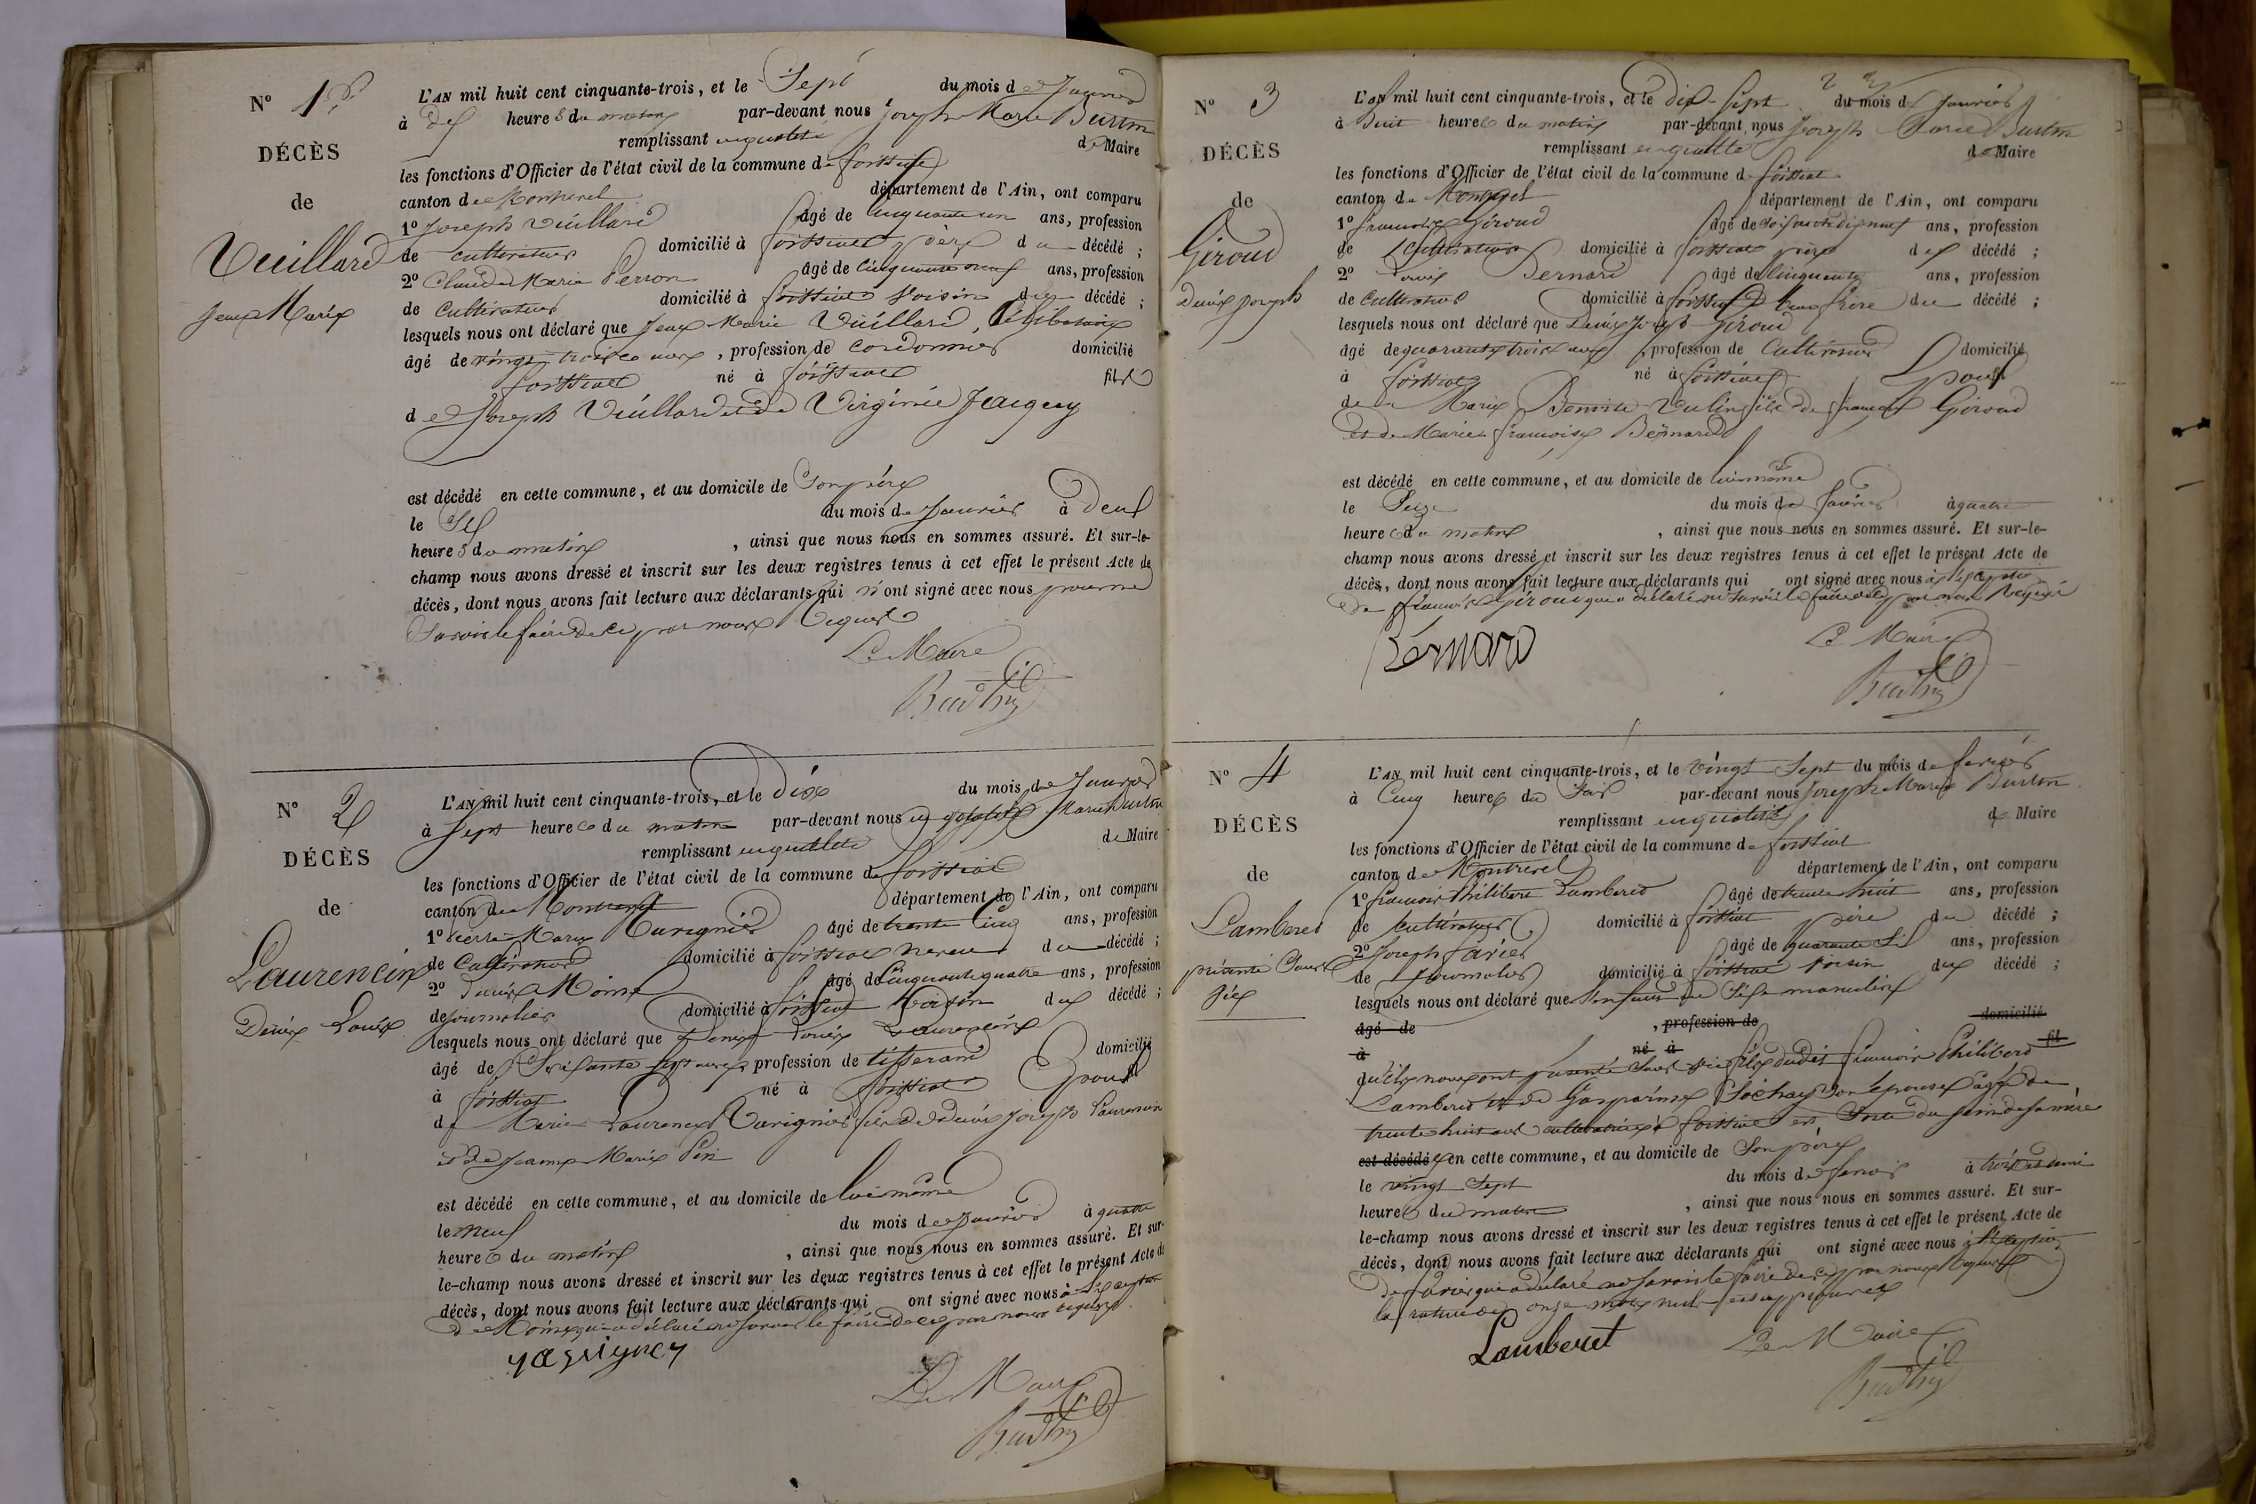 N° 1er
DÉCÈS
de
Vuillard
Jean Marie
L'AN mil huit cent cinquante-trois, et le Sept du mois de Janvier
à dix heures du matin par-devant nous Joseph Marie Burtin
remplissant en qualité de Maire
les fonctions d'Officier de l'état civil de la commune de foissiat
canton de Montrevel département de l'Ain, ont comparu
1° Joseph Vuillard âgé de cinquante un ans, profession
de cultivateur domicilié à foissiat père du décédé ;
2° Claude Marie Perron âgé de cinquante neuf ans, profession
de Cultivateur domicilié à foissiat voisin du décédé ;
lesquels nous ont déclaré que Jean Marie Vuillard, Célibataire
âgé de vingt trois ans, profession de cordonnier domicilié
foissiat né à foissiat fils
de Joseph Vuillard et de Virginie
est décédé en cette commune, et au domicile de Son père
le Six du mois de Janvier à deux
heures du matin, ainsi que nous nous en sommes assuré. Et sur-le-
champ nous avons dressé et inscrit sur les deux registres tenus à cet effet le présent Acte de
décès, dont nous avons fait lecture aux déclarants qui n'ont signé avec nous pour ne
Savoir le faire de ce par nous requis
Le Maire
Burtin
N° 2
DÉCÈS
de
Laurencin
Denis Louis
L'AN mil huit cent cinquante-trois, et le dix du mois de Janvier
à Sept heures du matin par-devant nous Marie Burtin
remplissant en qualité de Maire
les fonctions d'Officier de l'état civil de la commune de foissiat
canton de Montrevel département de l'Ain, ont comparu
1° Pierre Marie âgé de trente cinq ans, profession
de Cultivateur domicilié à foissiat neveu du décédé ;
2° Denis Moine âgé de cinquante quatre ans, profession
de journalier domicilié à foissiat voisin du décédé ;
lesquels nous ont déclaré que Denis Louis Laurencin
âgé de Soixante sept ans, profession de tisserand domicilié
à foissiat né à foissiat Epoux
de Marie Laurence fils de Denis Joseph Laurencin
et de Jeanne Marie
est décédé en cette commune, et au domicile de lui même
le neuf du mois de Janvier à quatre
heures du matin, ainsi que nous nous en sommes assuré. Et sur-
le-champ nous avons dressé et inscrit sur les deux registres tenus à cet effet le présent Acte de
décès, dont nous avons fait lecture aux déclarants qui ont signé avec nous à l'exception
de Moine qui a déclaré ne savoir le faire de ce par nous requis
Le Maire
Burtin
N° 3
DÉCÈS
de
Giroud
Denis Joseph
L'AN mil huit cent cinquante-trois, et le dix-Sept du mois de Janvier
à huit heures du matin par-devant nous Joseph Marie Burtin
remplissant en qualité de Maire
les fonctions d'Officier de l'état civil de la commune de foissiat
canton de Montrevel département de l'Ain, ont comparu
1° François Giroud âgé de soixante dix neuf ans, profession
de Cultivateur domicilié à foissiat père du décédé ;
2° Denis Bernard âgé de cinquante ans, profession
de Cultivateur domicilié à foissiat beau frère du décédé ;
lesquels nous ont déclaré que Denis Joseph Giroud
âgé de quarante trois ans, profession de Cultivateur domicilié
à foissiat né à foissiat Epoux
de Marie fils de François Giroud
et de Marie françoise Bernard
est décédé en cette commune, et au domicile de lui même
le Seize du mois de Janvier à quatre
heures du matin, ainsi que nous nous en sommes assuré. Et sur-le-
champ nous avons dressé et inscrit sur les deux registres tenus à cet effet le présent Acte de
décès, dont nous avons fait lecture aux déclarants qui ont signé avec nous à l'exception
de François Giroud qui a déclaré ne savoir le faire de ce par nous requis
Bernard
Le Maire
Burtin
N° 4
DÉCÈS
de
Lamberet
présenté Sans
vie
L'AN mil huit cent cinquante-trois, et le vingt Sept du mois de fevrier
à Cinq heures du Soir par-devant nous Joseph Marie Burtin
remplissant en qualité de Maire
les fonctions d'Officier de l'état civil de la commune de foissiat
canton de Montrevel département de l'Ain, ont comparu
1° François Philibert Lamberet âgé de trente huit ans, profession
de Cultivateur domicilié à foissiat père du décédé ;
2° Joseph favier âgé de quarante Six ans, profession
de Journalier domicilié à foissiat voisin du décédé ;
lesquels nous ont déclaré que l'enfant du Sexe masculin
âgé de , profession de domicilié
à né à fil
qu'ils nous ont présenté Sans vie fils dudit François Philibert
Lamberet et de Gasparine Sochay Son épouse âgée de
trente huit ans cultivatrice à foissiat est Sorti du sein de sa mère
est décédé en cette commune, et au domicile de Son père
le vingt Sept du mois de fevrier à trois et demi
heures du matin, ainsi que nous nous en sommes assuré. Et sur-
le-champ nous avons dressé et inscrit sur les deux registres tenus à cet effet le présent Acte de
décès, dont nous avons fait lecture aux déclarants qui ont signé avec nous à l'exception
de favier qui a déclaré ne savoir le faire de ce par nous requis
la rature de onze mots nuls est approuvée
Lamberet
Le Maire
Burtin